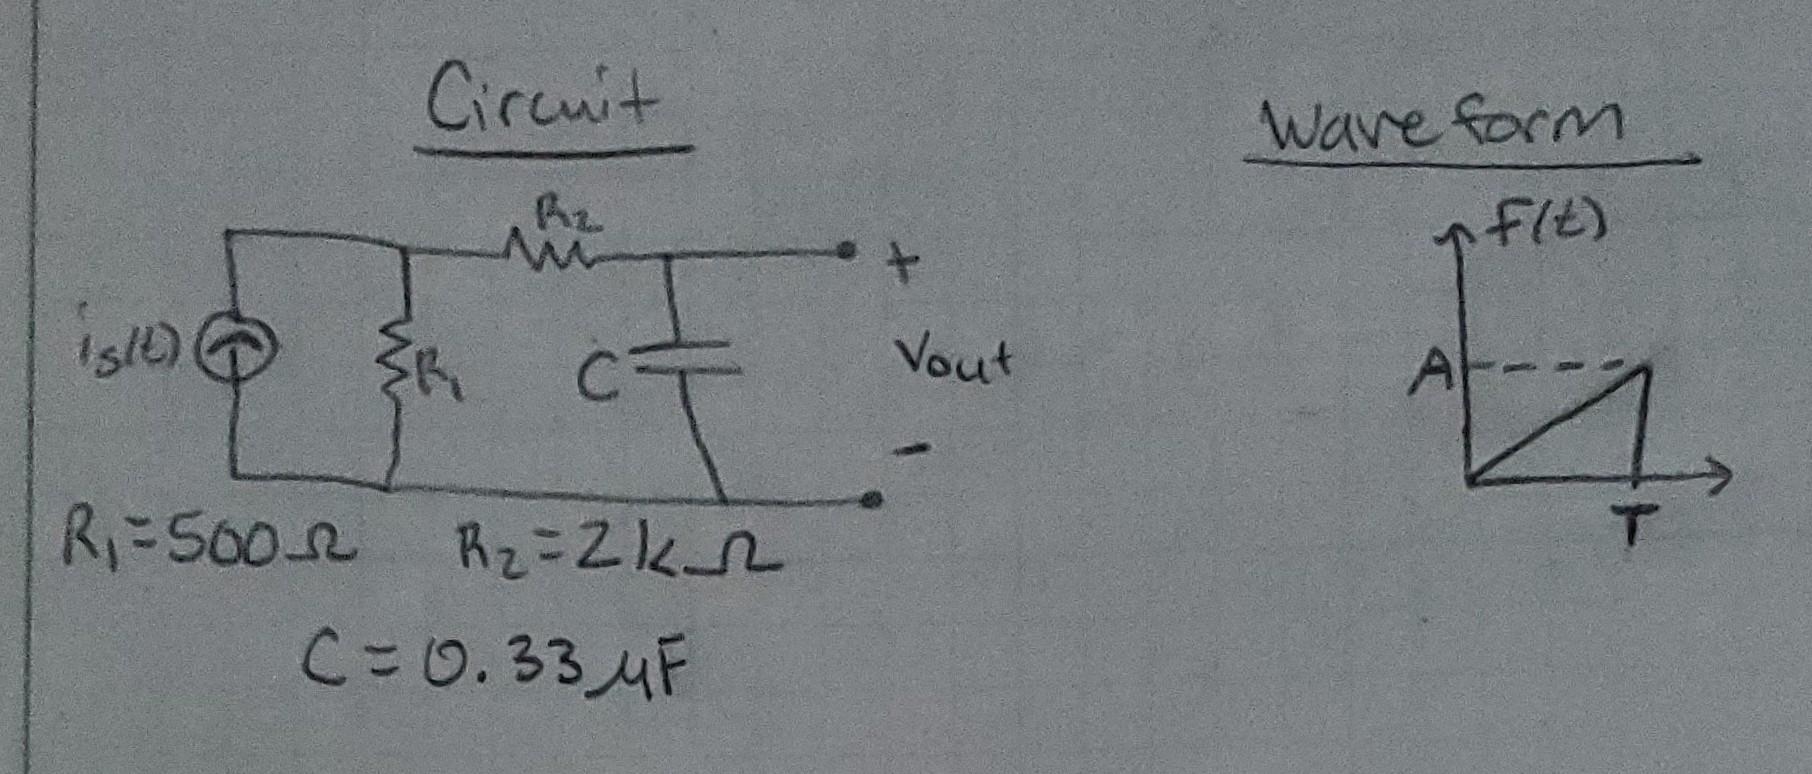 Circuit
Waveform
R₂
F(t)
+
is(t)
R₁
C
Vout
A
-
T
R₁=500Ω R₂=2kΩ
C=0.33µF